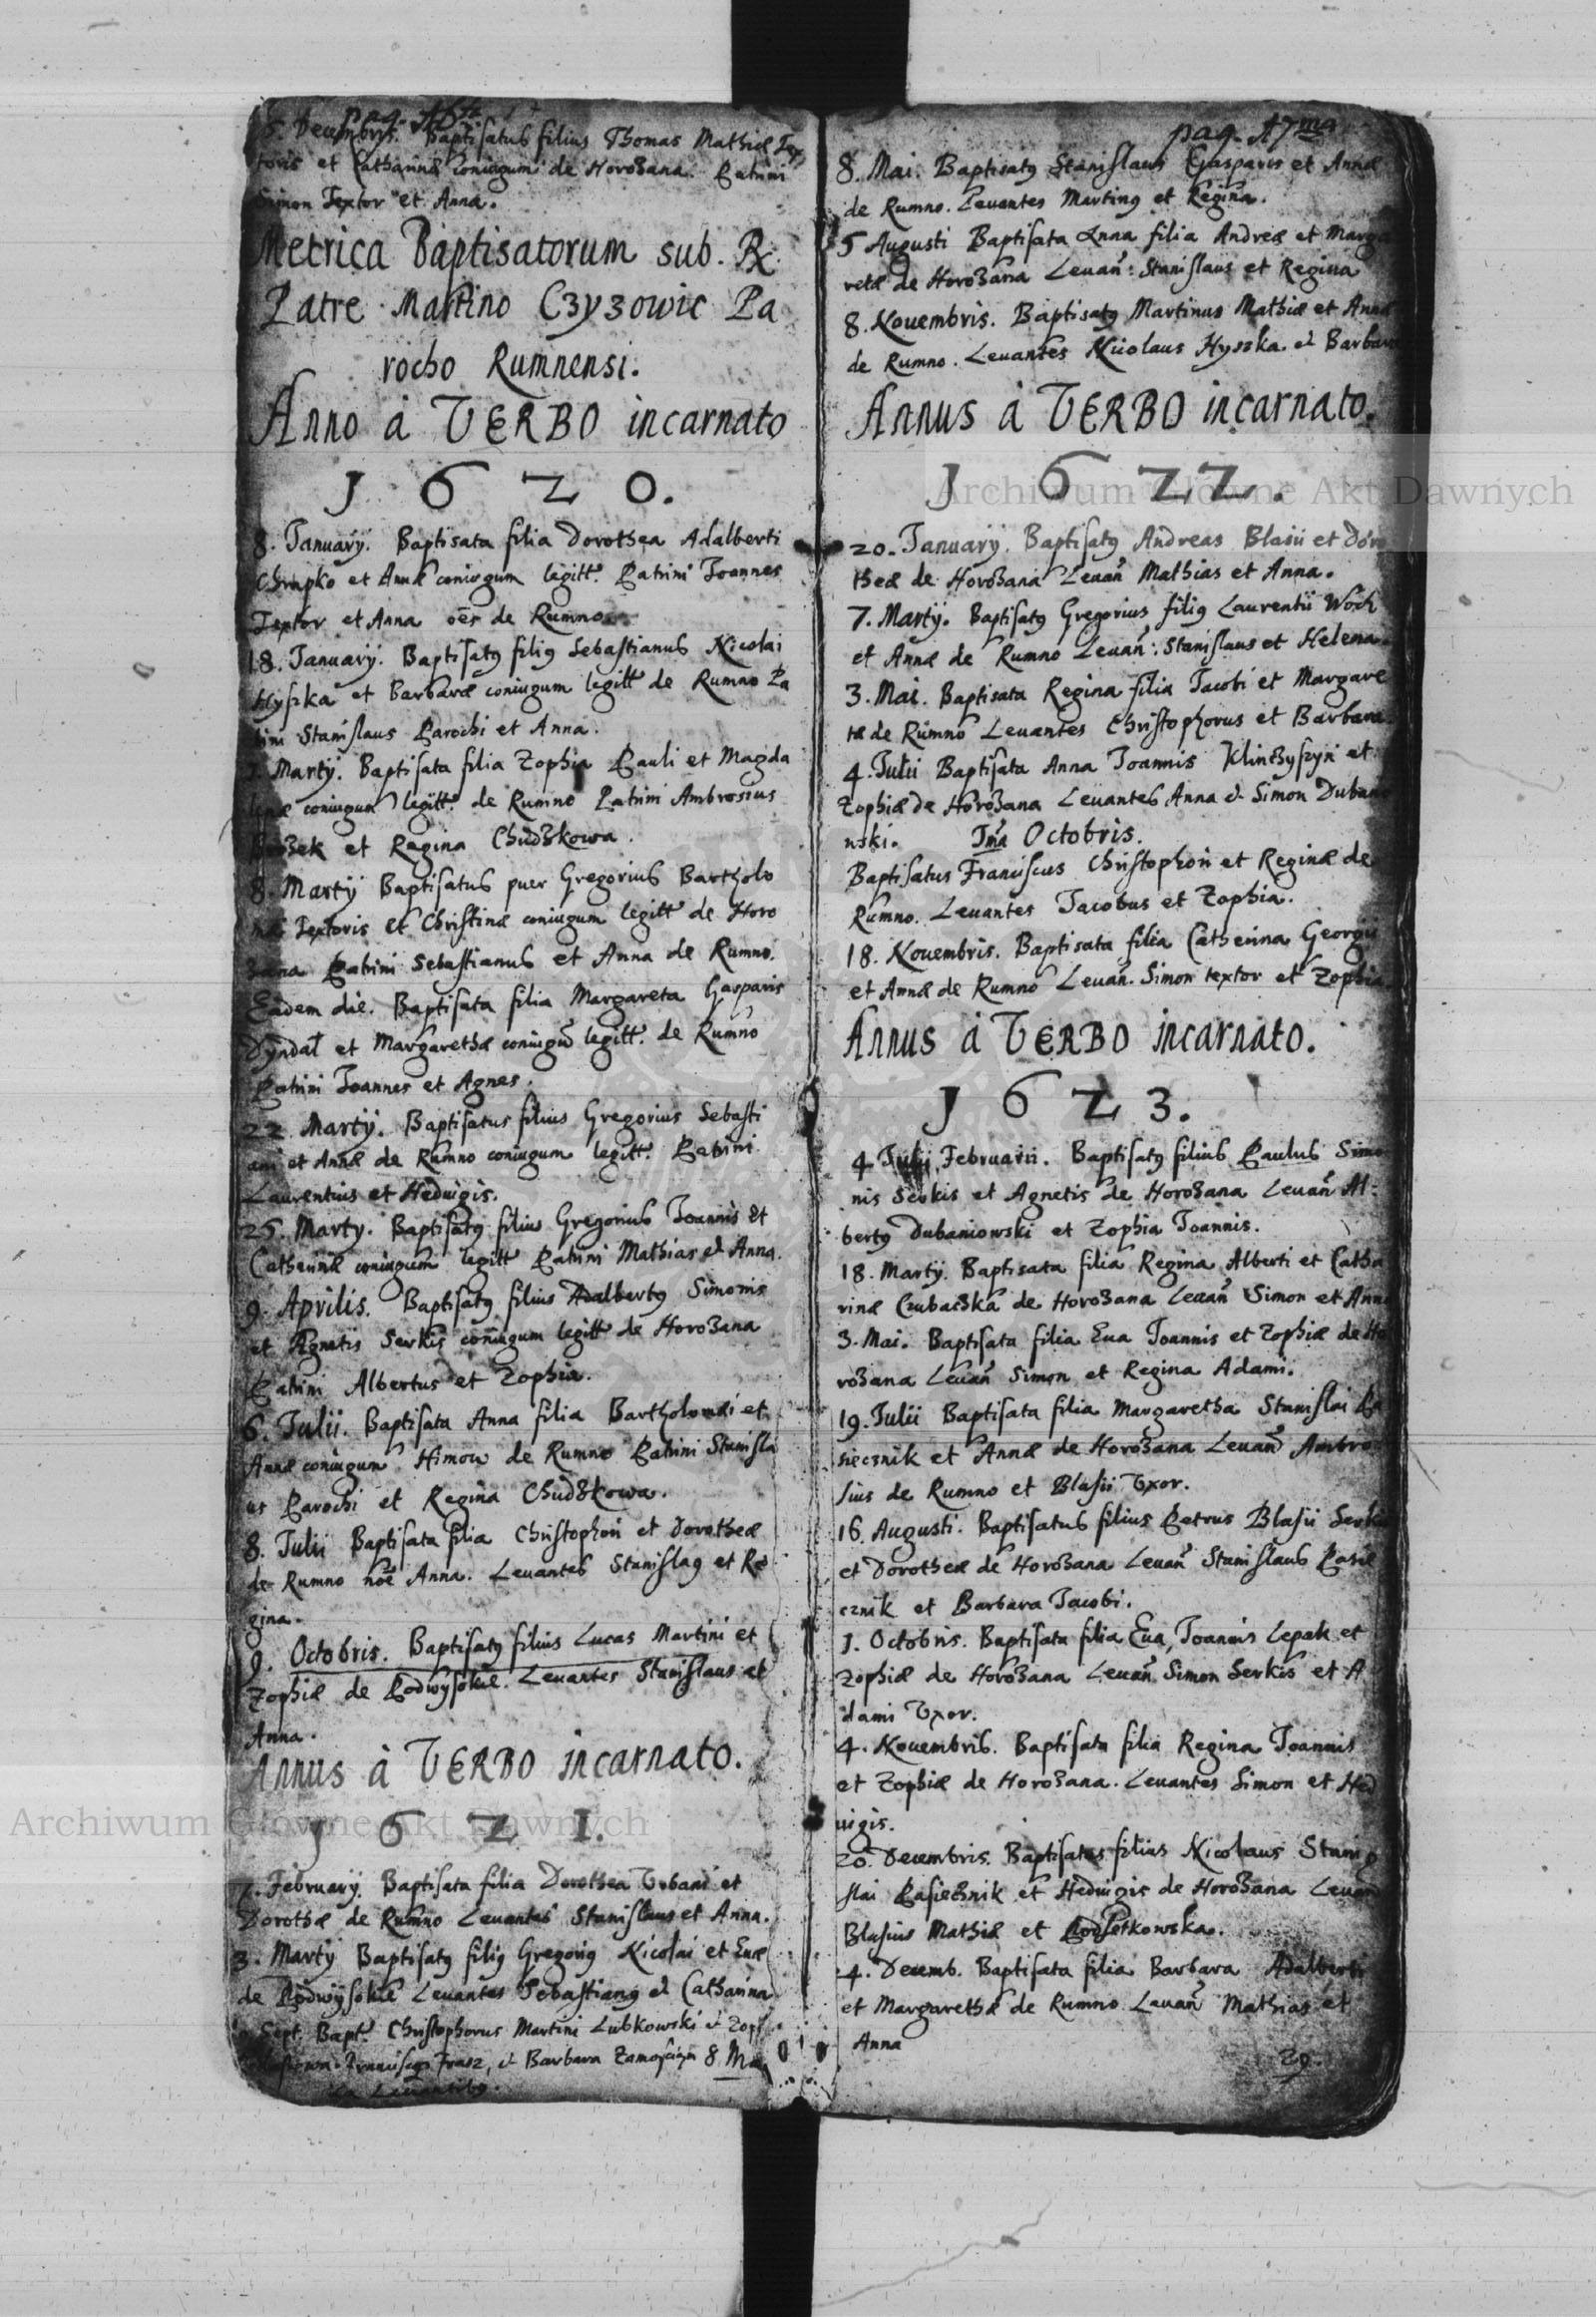 pag. 16ta
6. Decembris. Baptisatus filius Thomas Mathiæ Tex
toris et Catharinæ coniugum de Horożana. Patrini
Simon Textor et Anna.
Metrica Baptisatorum sub. R.
Patre Martino Czyzowic Pa
rocho Rumnensi.
Anno à VERBO incarnato
1620.
8. January. Baptisata filia Dorothea Adalberti
Chrapko et Annæ coniugum legitt. Patrini Joannes
Textor et Anna oēs de Rumno
18. January. Baptisatꝰ filiꝰ Sebastianus Nicolai
Hyszka et Barbaræ coniugum legitt de Rumno Pa
trini Stanislaus Parochi et Anna.
Marty. Baptisata filia Zophia Pauli et Magda
lenæ coniugum legitt. de Rumno Patrini Ambrosius
et Regina Chudzkowa.
8. Marty Baptisatus puer Gregorius Bartholo
mæi Textoris et Christinæ coniugum legitt de Horo
żana Patrini Sebastianus et Anna de Rumno.
Eadem die. Baptisata filia Margareta Gasparis
Dyndal et Margarethæ coniugū legitt. de Rumno
Patrini Joannes et Agnes.
22 Marty. Baptisatus filius Gregorius Sebasti
ani et Annæ de Rumno coniugum legitt. Patrini
Laurentius et Heduigis.
25. Marty. Baptisatꝰ filius Gregorius Joannis et
Catherinæ coniugum legitt Patrini Mathias et Anna.
9. Aprilis. Baptisatꝰ filius Adalbertꝰ Simonis
et Agnetis Serkis coniugum legitt de Horożana
Patrini Albertus et Zophia.
6. Julii. Baptisata Anna filia Bartholomæi et
Annæ coniugum Himow de Rumno Patrini Stanisla
us Parochi et Regina Chudzkowa.
8. Julii Baptisata filia Christophori et Dorotheæ
de Rumno noē Anna. Leuantes Stanislaꝰ et Re
gina.
9. Octobris. Baptisatꝰ filius Lucas Martini et
Zophiæ de Podwysokie. Leuantes Stanislaus et
Anna.
Annus à VERBO incarnato.
1621.
February. Baptisata filia Dorothea Vrbani et
Dorothæ de Rumno Leuantes Stanislaus et Anna.
3. Marty Baptisatꝰ filiꝰ Gregoriꝰ Nicolai et Euæ
de Podwysokie Leuantes Sebastianꝰ et Catharina
Sept. Bapt. Christophorus Martini Lubkowski et Zoph
Franciscꝰ et Barbara 8
Leuantibꝰ.
pag. 17ma
8. Mai. Baptisatꝰ Stanislaus Gasparis et Annæ
de Rumno. Leuantes Martinꝰ et Regina.
5 Augusti Baptisata Anna filia Andreæ et Marga
retæ de Horożana Leuan: Stanislaus et Regina
8. Nouembris. Baptisatꝰ Martinus Mathiæ et Annæ
de Rumno. Leuantes Nicolaus Hyszka et Barbara
Annus à VERBO incarnato.
1622.
20. January. Baptisatꝰ Andreas Blasii et Doro
theæ de Horożana Leuan Mathias et Anna.
7. Marty. Baptisatꝰ Gregorius filiꝰ Laurentii Woch
et Annæ de Rumno Leuan: Stanislaus et Helena.
3. Mai. Baptisata Regina filia Jacobi et Margare
tæ de Rumno Leuantes Christophorus et Barbara.
4. Julii Baptisata Anna Joannis et
Zophiæ de Horożana Leuantes Anna et Simon Dubanio
wski. Jma Octobris.
Baptisatus Franciscus Christophori et Reginæ de
Rumno. Leuantes Jacobus et Zophia.
18. Nouembris. Baptisata filia Catherina Georgii
et Annæ de Rumno Leuan. Simon textor et Zophia.
Annus à VERBO incarnato.
1623.
4 Februarii. Baptisatꝰ filius Paulus Simo
nis Serkis et Agnetis de Horożana Leuan Al:
bertꝰ Dubaniowski et Zophia Joannis.
18. Marty. Baptisata filia Regina Alberti et Catha
rinæ Czubaczka de Horożana Leuan Simon et Anna
3. Mai. Baptisata filia Eua Joannis et Zophiæ de Ho
rożana Leuan Simon et Regina Adami.
19. Julii Baptisata filia Margaretha Stanislai Pa
siecznik et Annæ de Horożana Leuan Ambro
sius de Rumno et Blasii Vxor.
16. Augusti. Baptisatus filius Petrus Blasii Serkis
et Dorotheæ de Horożana Leuan Stanislaus Pasie
cznik et Barbara Jacobi.
1. Octobris. Baptisata filia Eua Joannis Lepak et
Zophiæ de Horożana Leuan Simon Serkis et A
dami Vxor.
4. Nouembris. Baptisata filia Regina Joannis
et Zophiæ de Horożana. Leuantes Simon et Hed
uigis.
20. Decembris. Baptisatus filius Nicolaus Stani
slai Pasiecznik et Heduigis de Horożana Leuan
Blasius Mathiæ et
4. Decemb. Baptisata filia Barbara Adalberti
et Margarethæ de Rumno Leuan Mathias et
Anna
29.
Archiwum Główne Akt Dawnych
Archiwum Główne Akt Dawnych